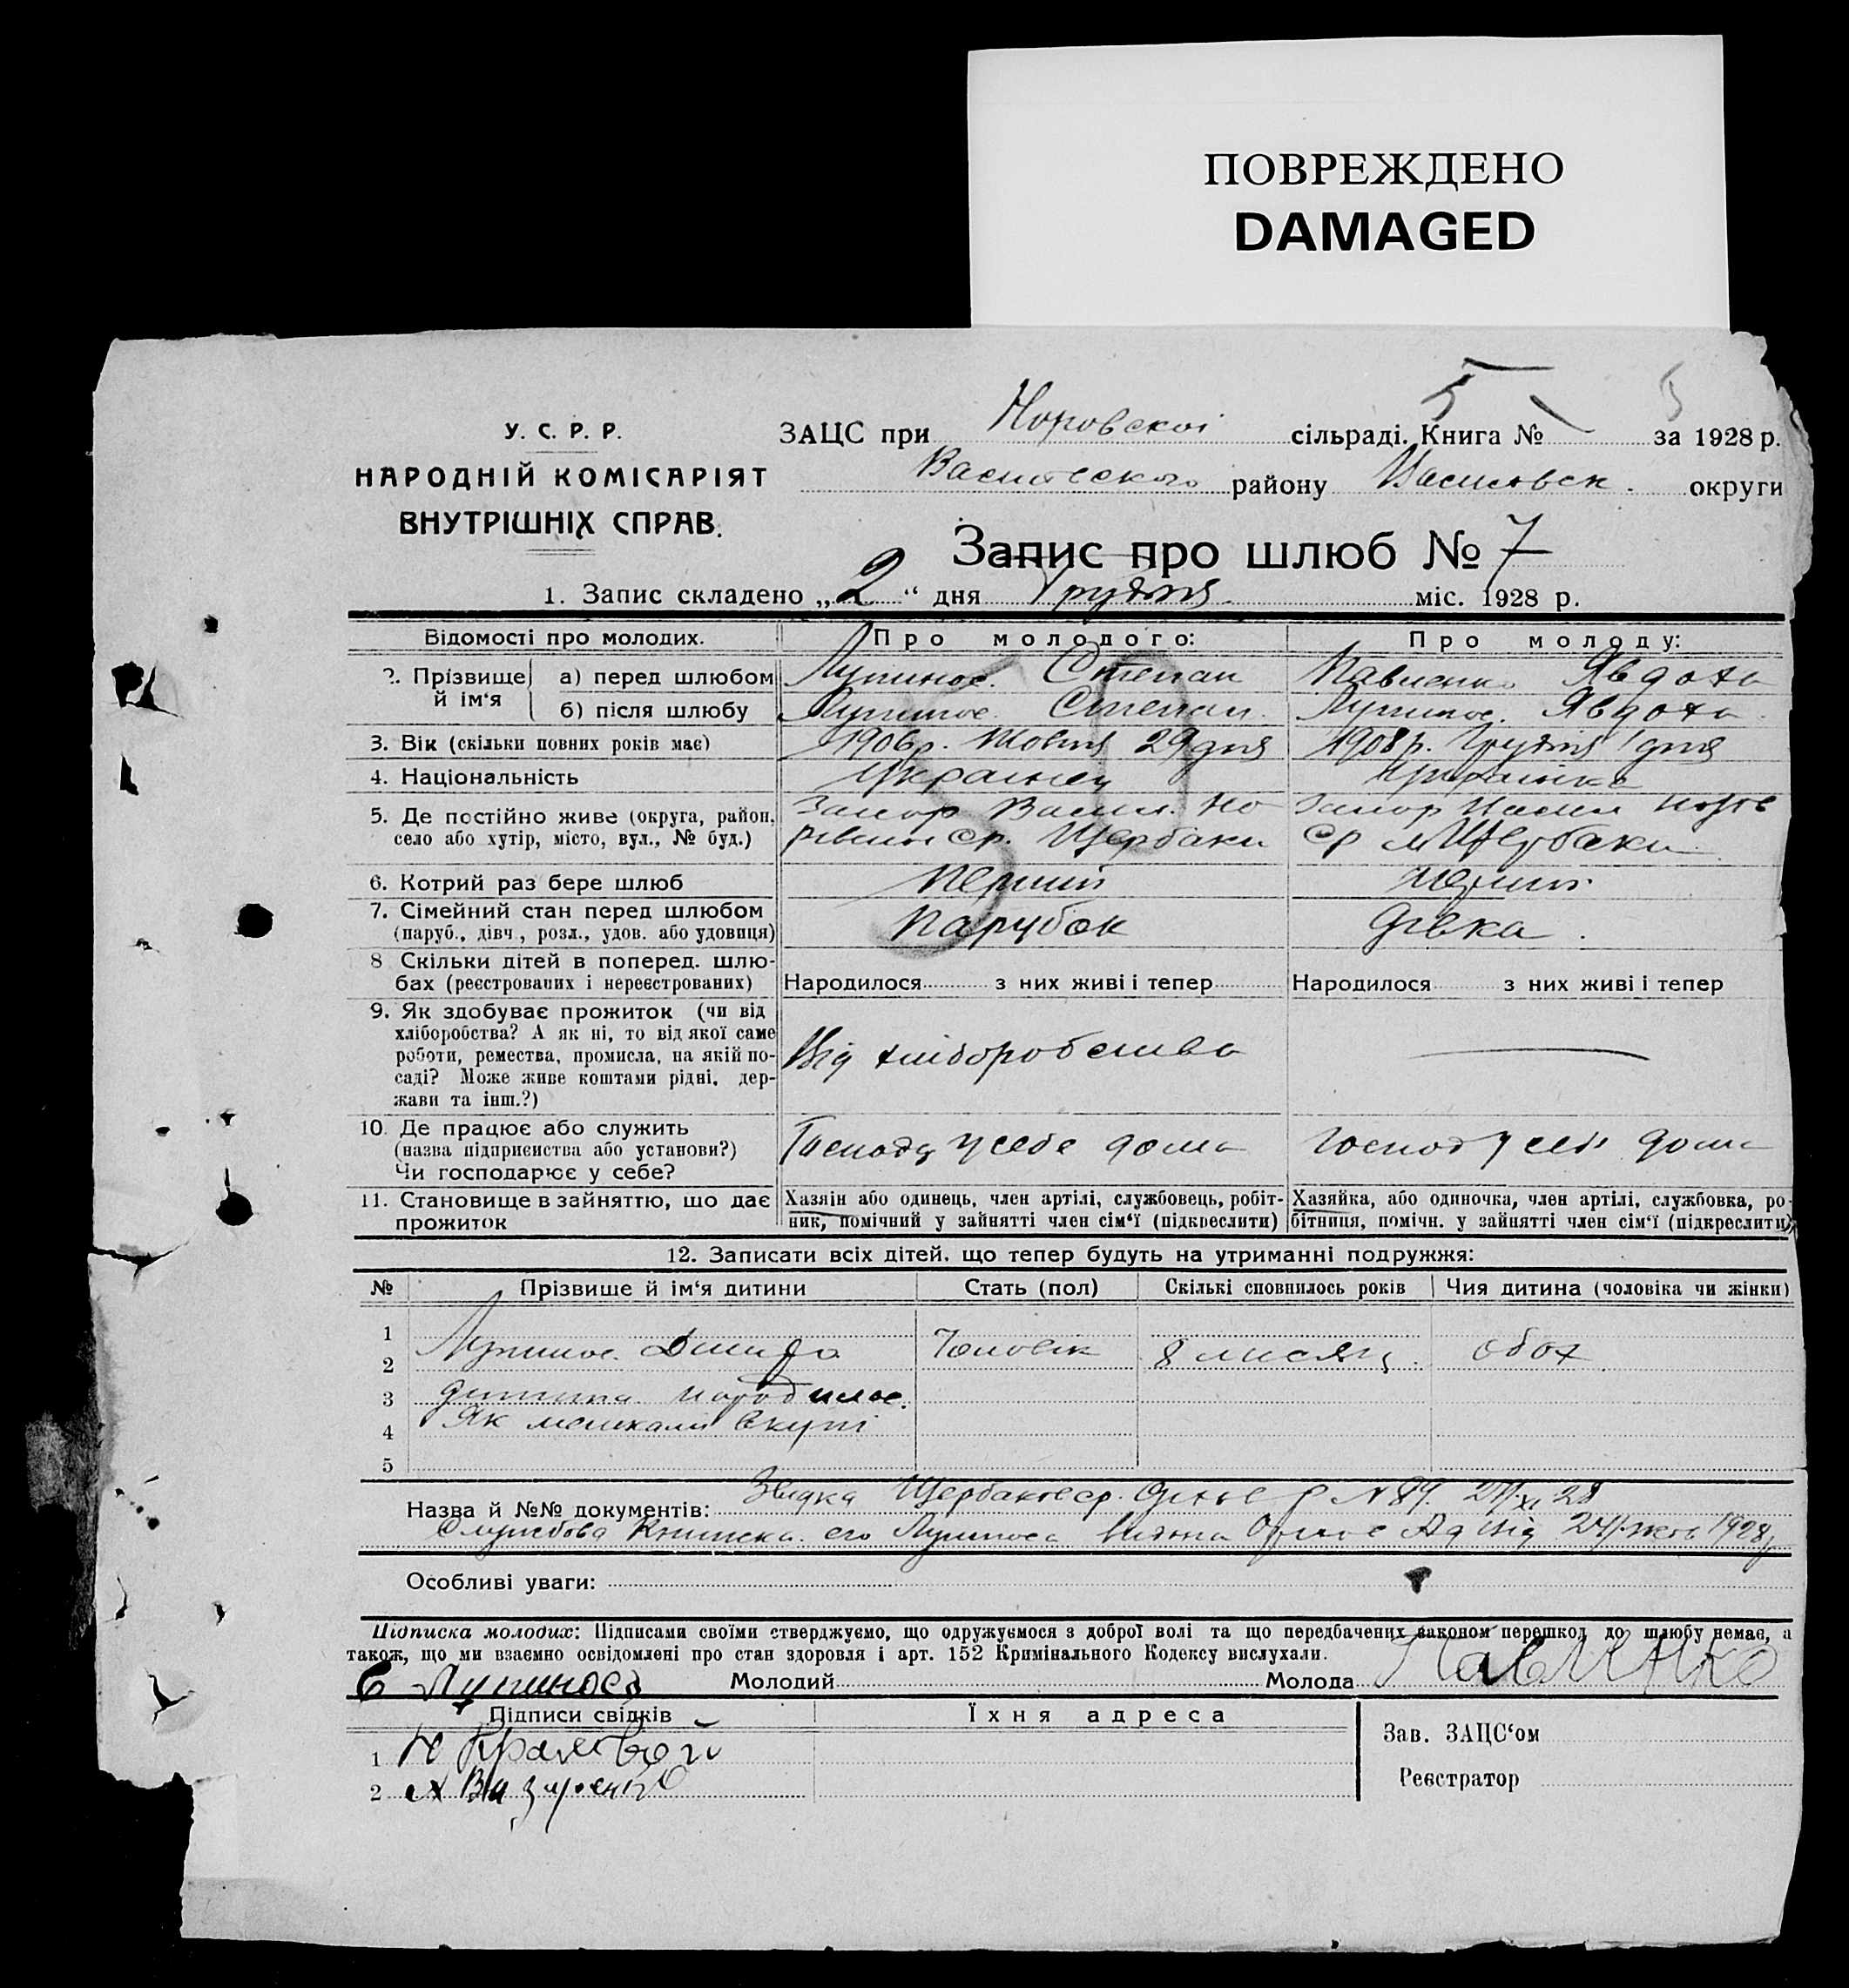 ПОВРЕЖДЕНО
DAMAGED
У. С. Р. Р.
НАРОДНІЙ КОМІСАРІЯТ
ВНУТРІШНІХ СПРАВ.
ЗАЦС при сільраді. Книга № 5 за 1928 р.
району округи
Запис про шлюб № 7
1. Запис складено „2“ дня Грудня міс. 1928 р.
Відомості про молодих. Про молодого: Про молоду:
2. Прізвище й ім‘я а) перед шлюбом Лупинос. Степан Павленко Явдоха
б) після шлюбу Лупинос. Степан. Лупинос. Явдоха.
3. Вік (скільки повних років має) 1906 р. Жовтня 29 дня 1908 р. Грудня 1 дня
4. Національність Украінец Украінка
5. Де постійно живе (округа, район, село або хутір, місто, вул., № буд.) Запор Васил. Но ср. Щербаки Запор Васил ср Щербаки
6. Котрий раз бере шлюб Перший Перший
7. Сімейний стан перед шлюбом (паруб., дівч., розл., удов. або удовиця) Парубок Дівка.
8 Скільки дітей в поперед. шлюбах (реєстрованих і нереєстрованих) Народилося з них живі і тепер Народилося з них живі і тепер
9. Як здобуває прожиток (чи від хліборобства? А як ні, то від якої саме роботи, ремества, промисла, на якій посаді? Може живе коштами рідні, держави та інш.?) Від хліборобства
10. Де працює або служить (назва підприємства або установи?) Чи господарює у себе? Господ у себе дома Господ у себе дома
11. Становище в зайняттю, що дає прожиток Хазяін або одинець, член артілі, службовець, робітник, помічний у зайнятті член сім‘ї (підкреслити) Хазяйка, або одиночка, член артілі, службовка, робітниця, помічн. у зайнятті член сім‘ї (підкреслити)
12. Записати всіх дітей, що тепер будуть на утриманні подружжя:
№ Прізвище й ім‘я дитини Стать (пол) Скількі сповнилось років Чия дитина (чоловіка чи жінки)
1
2 Лупинос. Чоловік 8 місяц. обох
3 дитина народилас.
4 Як мешкали вкупі
5
Назва й №№ документів: № 89. XI 28
Книжка его Лупиноса від 1928 р
Особливі уваги:
Підписка молодих: Підписами своїми стверджуємо, що одружуємося з доброї волі та що передбачених законом перешкод до шлюбу немає, а
також, що ми взаємно освідомлені про стан здоровля і арт. 152 Кримінального Кодексу вислухали.
С Лупиносъ Молодий Молода Павленко
Підписи свідків Їхня адреса
1
2
Зав. ЗАЦС‘ом
Реєстратор